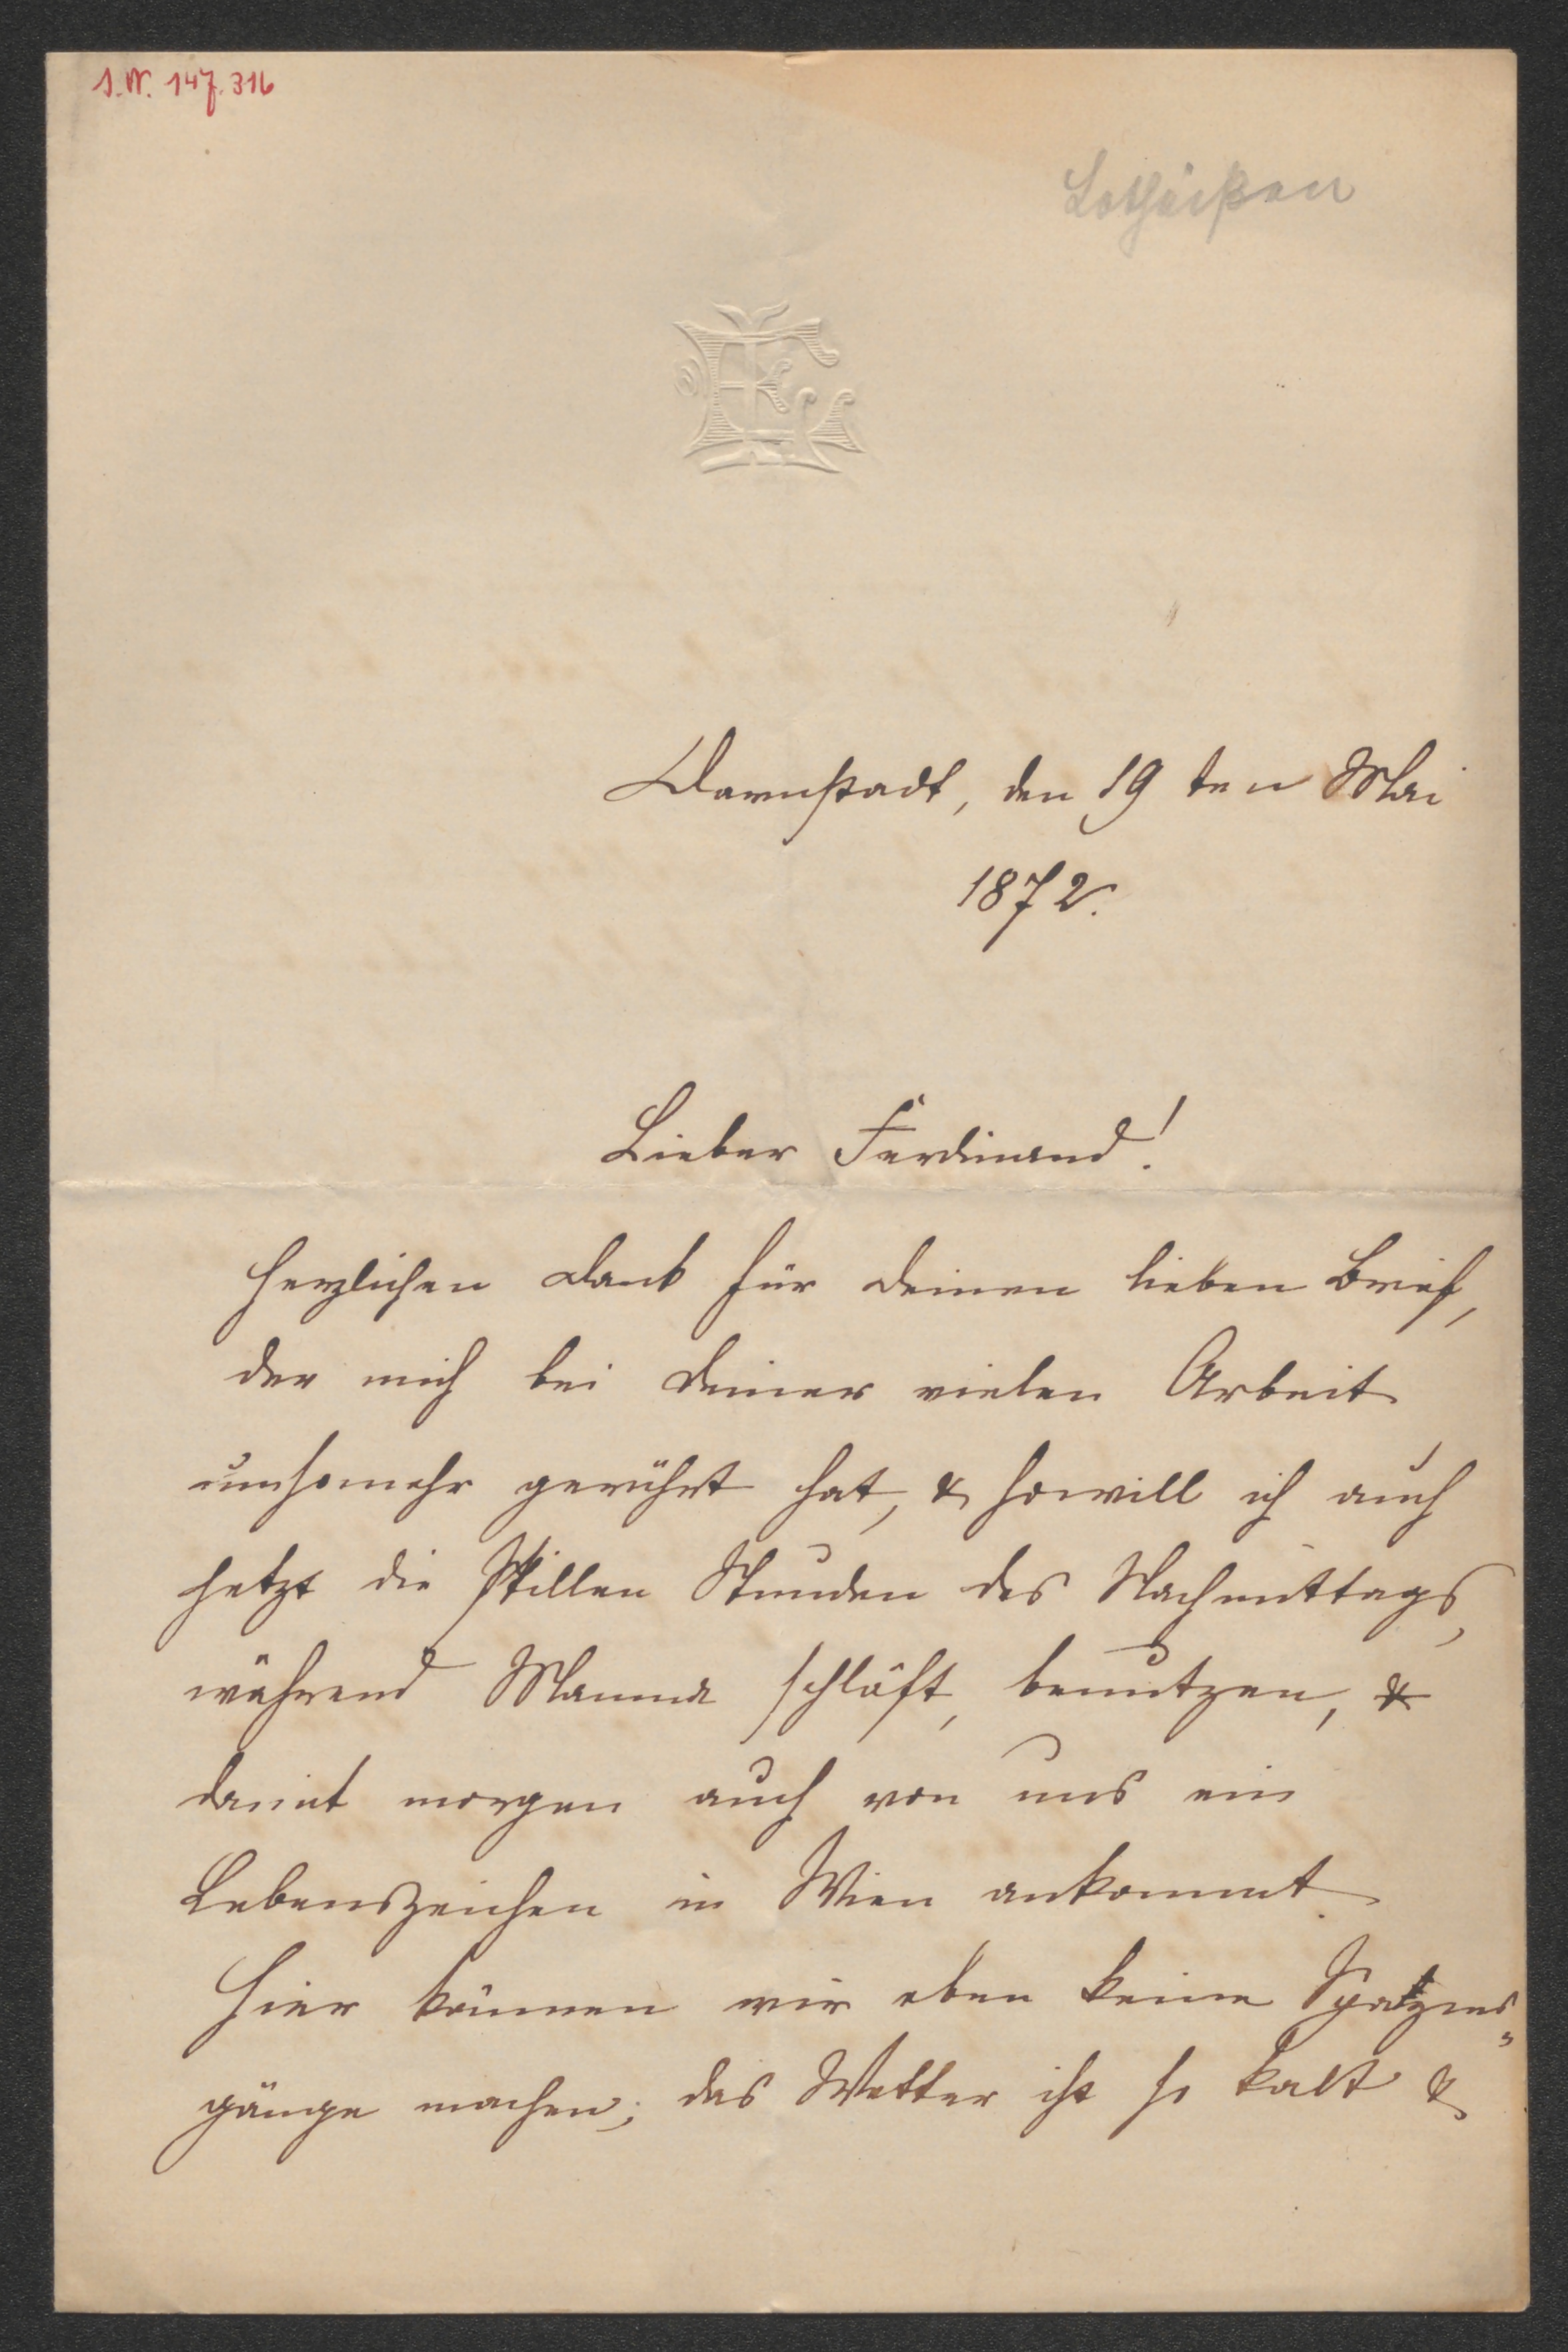 I.N. 147.316
Lotheißen
Darmstadt, den 19 ten Mai
1872.
Lieber Ferdinand!
Herzlichen Dank für Deinen lieben Brief,
der mich bei Deiner vielen Arbeit
umsomehr gerührt hat, & so will ich auch
jetzt die stillen Stunden des Nachmittags,
während Mamma schläft, benutzen, &
damit morgen auch von uns ein
Lebenszeichen in Wien ankommt.
Hier können wir eben keine Spatzier„
gänge machen; das Wetter ist so kalt &